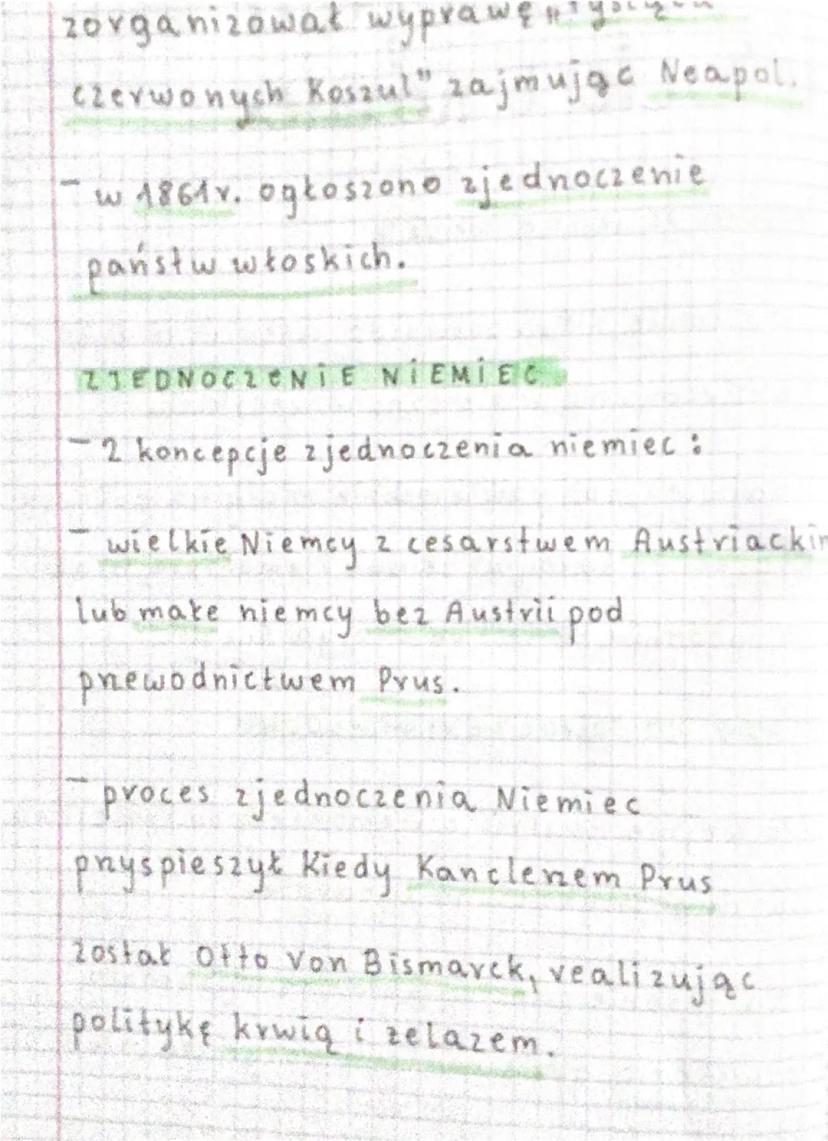 zorganizował wyprawę „Tysiąca
czerwonych Koszul" zajmując Neapol.
- w 1861r. ogłoszono zjednoczenie
państw włoskich.
ZJEDNOCZENIE NIEMIEC
- 2 koncepcje zjednoczenia niemiec:
- wielkie Niemcy z cesarstwem Austriackim
lub małe niemcy bez Austrii pod
przewodnictwem Prus.
- proces zjednoczenia Niemiec
przyspieszył Kiedy Kanclerzem Prus
został Otto von Bismarck, realizując
politykę krwią i zelazem.